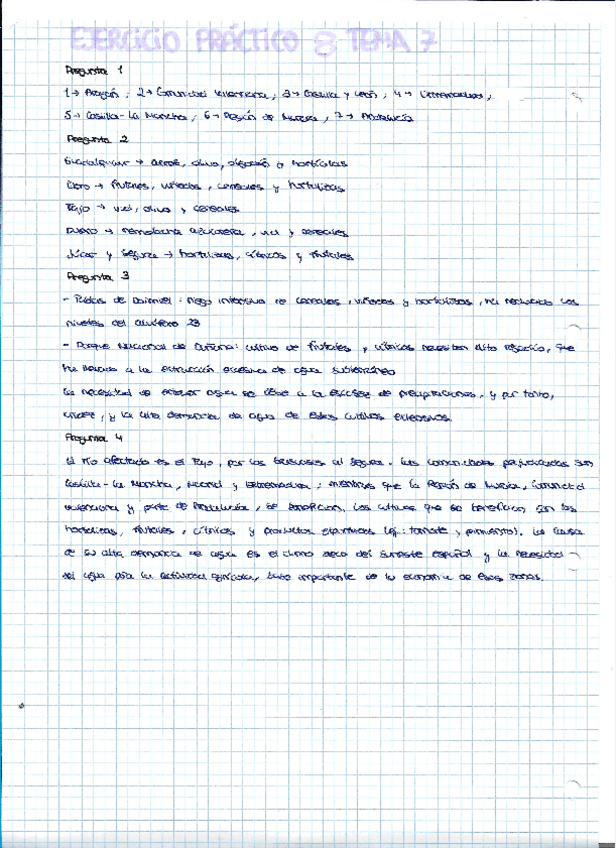 EJERCICIO PRÁCTICO 8 TEMA 7
Pregunta 1
1→ Aragón, 2→ Comunidad Valenciana, 3→ Castilla y León, 4→ Extremadura,
5→ Castilla-La Mancha, 6→ Región de Murcia, 7→ Andalucía
Pregunta 2
Guadalquivir → arroz, olivo, algodón y hortícolas
Ebro → frutales, viñedos, cereales y hortalizas
Tajo → vid, olivo y cereales
Duero → remolacha azucarera, vid y cereales
Júcar y Segura → hortalizas, cítricos y frutales
Pregunta 3
- Tablas de Daimiel: riego intensivo de cereales, viñedos y hortalizas, ha reducido los
niveles del acuífero 23
- Parque Nacional de Doñana: cultivo de frutales y cítricos necesitan alto regadío, que
ha llevado a la extracción excesiva de agua subterránea
La necesidad de extraer agua se debe a la escasez de precipitaciones, y por tanto,
y la alta demanda de agua de estos cultivos extensivos.
Pregunta 4
El río afectado es el Tajo, por los trasvases al Segura. Las comunidades perjudicadas son
Castilla-La Mancha, Madrid y Extremadura; mientras que la Región de Murcia, Comunidad
Valenciana y parte de Andalucía, se benefician. Los cultivos que se benefician son las
hortalizas, frutales, cítricos y productos (ej: tomate y pimiento). La causa
de su alta demanda de agua es el clima seco del sureste español y la necesidad
del agua para la actividad agrícola, base importante de la economía de esas zonas.